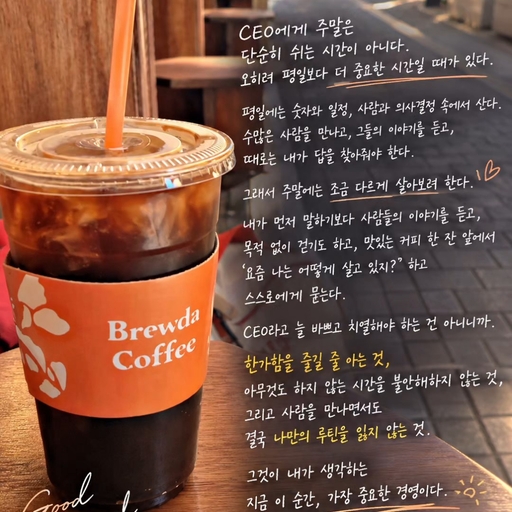 CEO에게 주말은
단순히 쉬는 시간이 아니다.
오히려 평일보다 더 중요한 시간일 때가 있다.
평일에는 숫자와 일정, 사람과 의사결정 속에서 산다.
수많은 사람을 만나고, 그들의 이야기를 듣고,
때로는 내가 답을 찾아줘야 한다.
그래서 주말에는 조금 다르게 살아보려 한다.
내가 먼저 말하기보다 사람들의 이야기를 듣고,
목적 없이 걷기도 하고, 맛있는 커피 한 잔 앞에서
'요즘 나는 어떻게 살고 있지?" 하고
스스로에게 묻는다.
CEO라고 늘 바쁘고 치열해야 하는 건 아니니까.
한가함을 즐길 줄 아는 것,
아무것도 하지 않는 시간을 불안해하지 않는 것,
그리고 사람을 만나면서도
결국 나만의 루틴을 잃지 않는 것.
그것이 내가 생각하는
지금 이 순간, 가장 중요한 경영이다.
Brewda
Coffee
Good